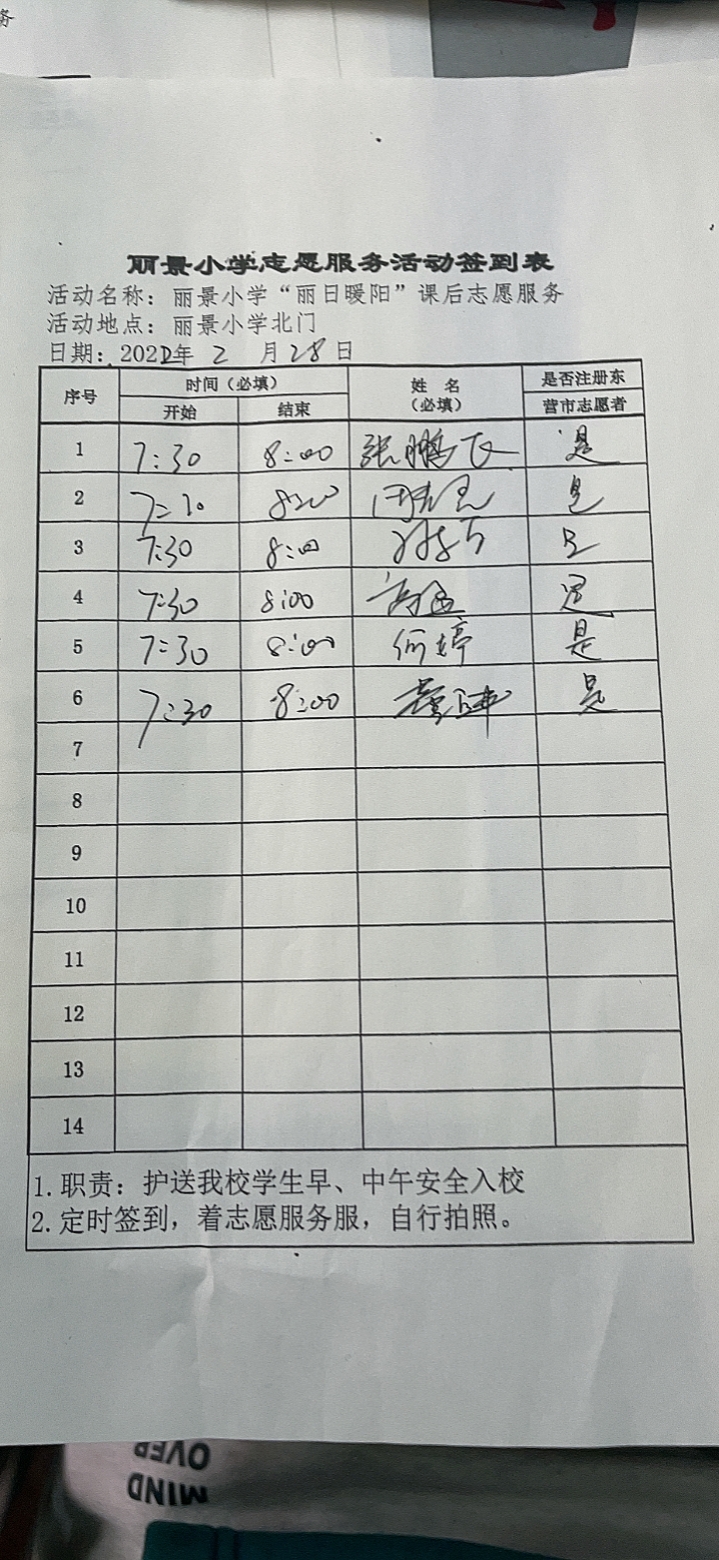 务
丽景小学志愿服务活动签到表
活动名称：丽景小学“丽日暖阳”课后志愿服务
活动地点：丽景小学北门
日期：2022年 2 月 28 日
序号 时间（必填） 姓 名（必填） 是否注册东营市志愿者
开始 结束
1 7:30 8:00 张鹏飞 是
2 7:30 8:00 是
3 7:30 8:00 是
4 7:30 8:00 是
5 7:30 8:00 何婷 是
6 7:30 8:00 是
7
8
9
10
11
12
13
14
1.职责：护送我校学生早、中午安全入校
2.定时签到，着志愿服务服，自行拍照。
OVER
MIND